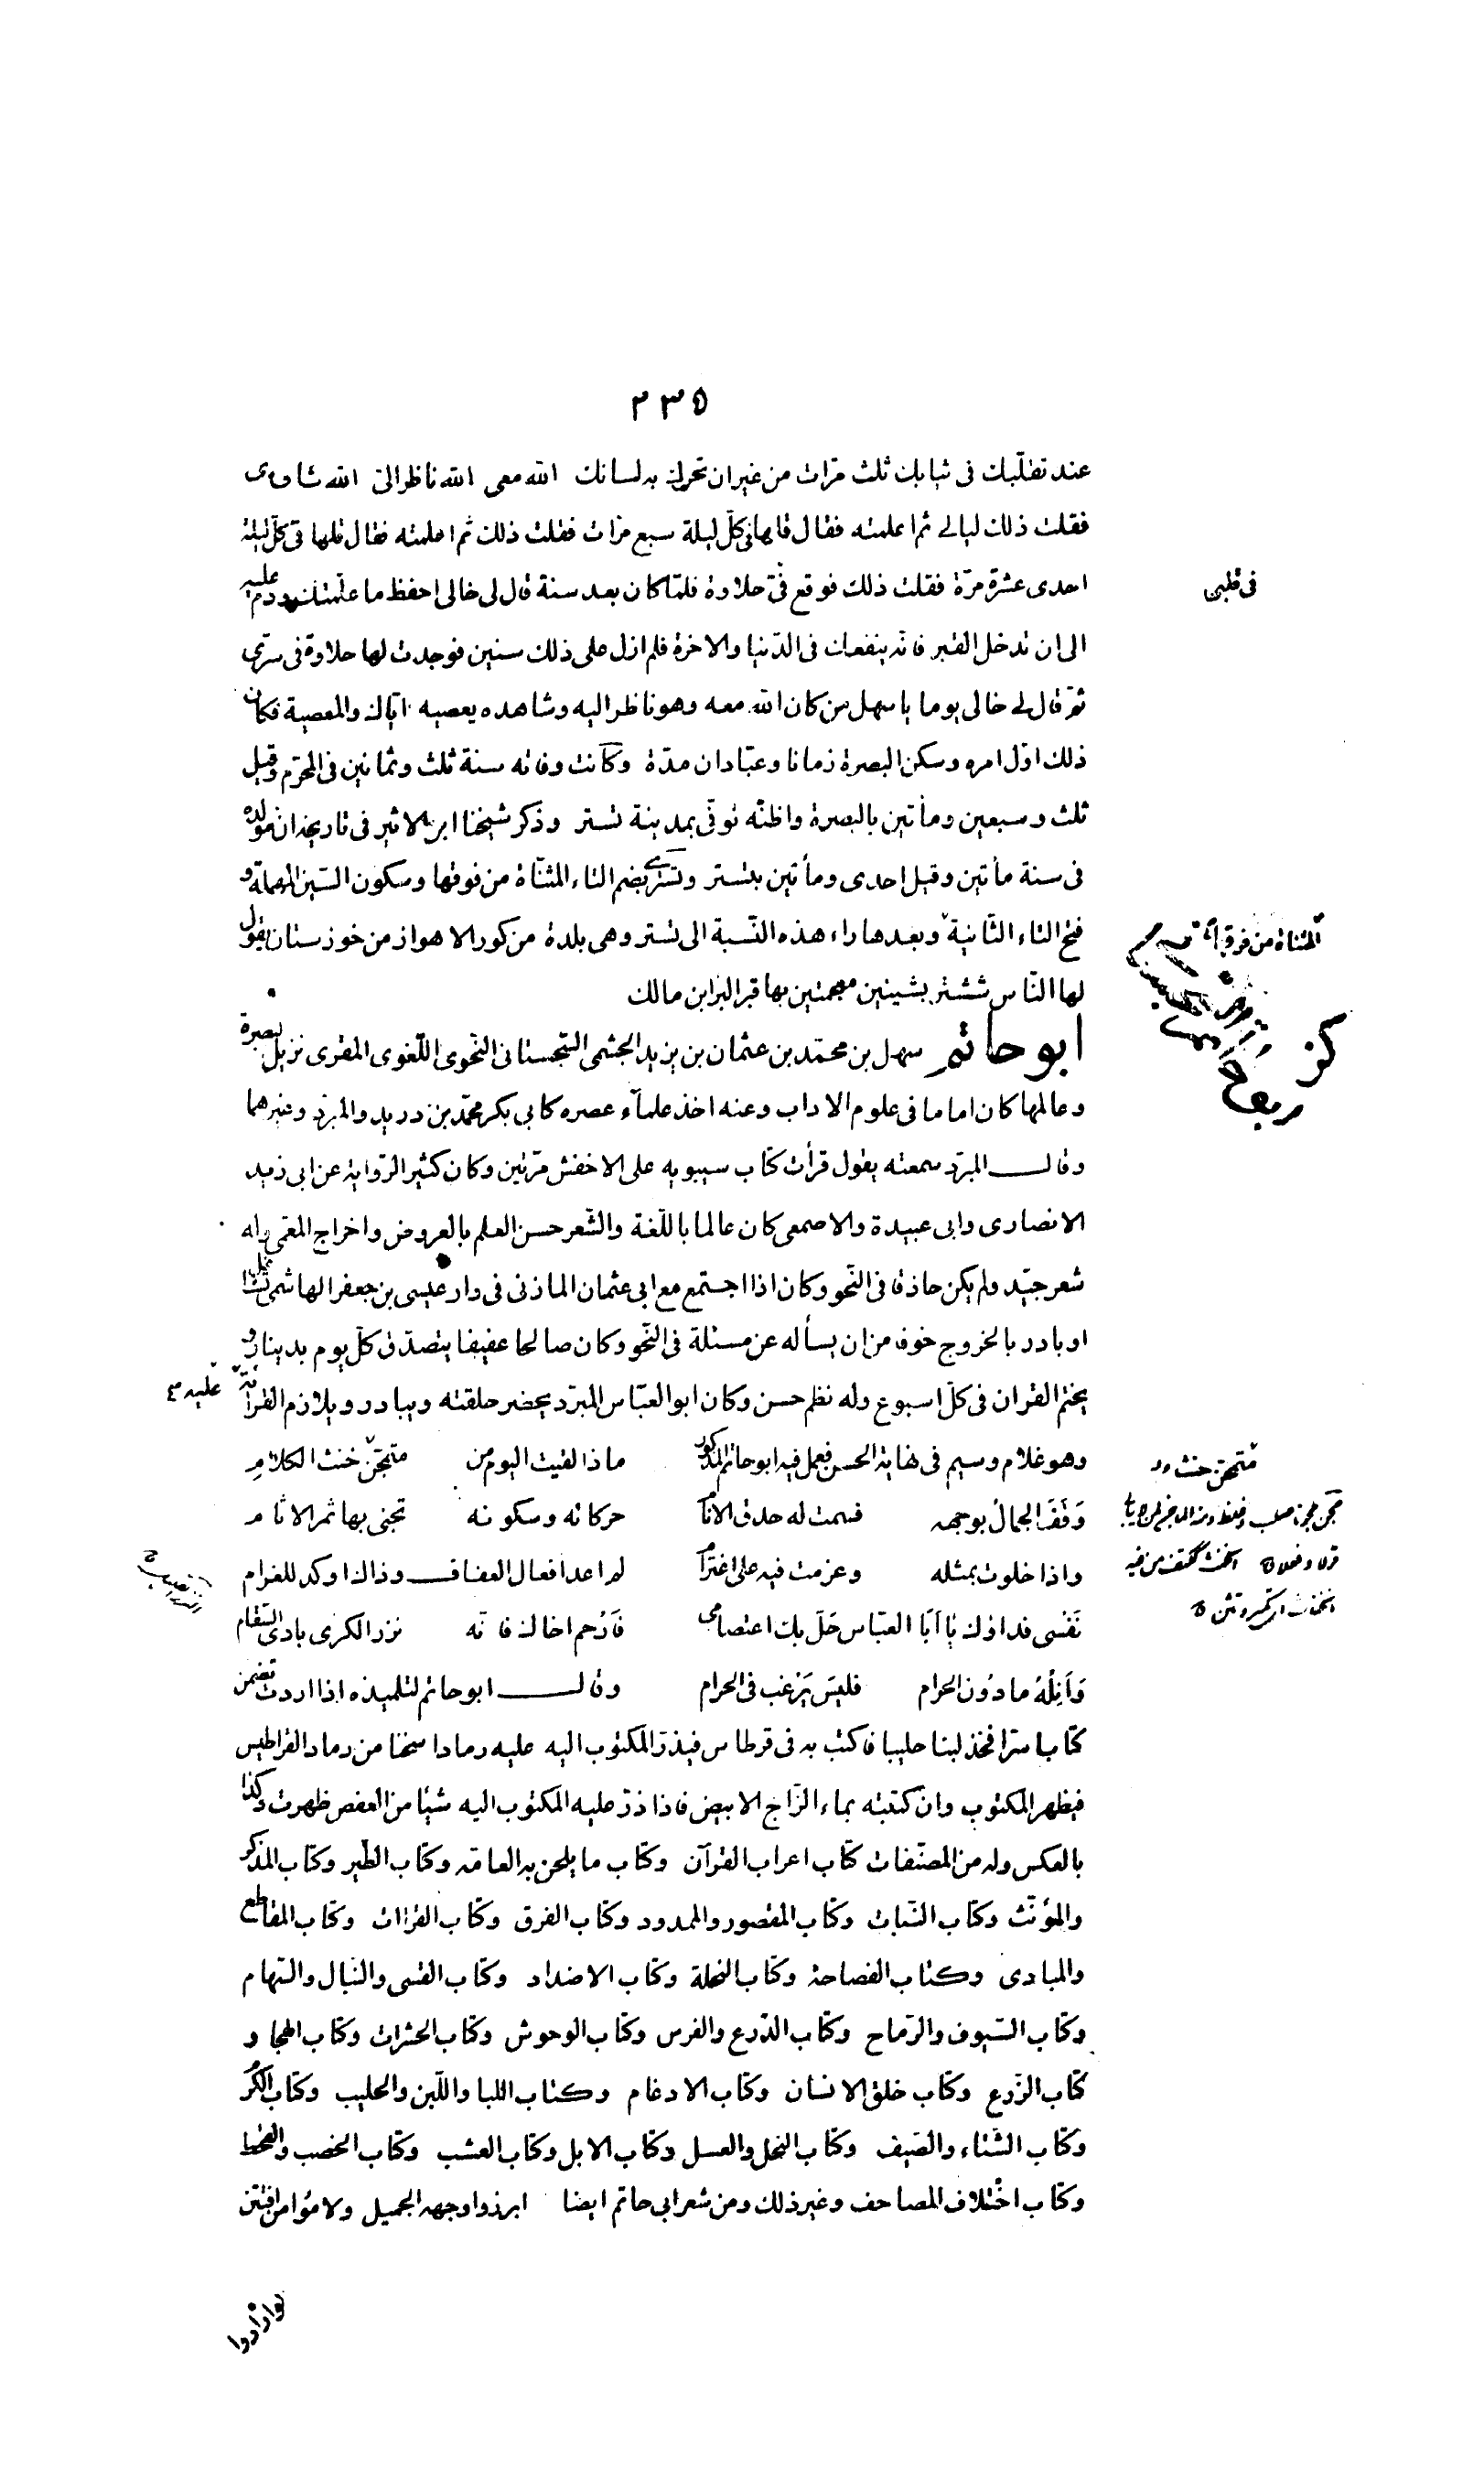 ٢٣٥
عند تقلّبك فى ثيابك ثلث مرّات من غير ان تحرك به لسانك الله معى الله ناظر الىّ الله شاهدى
فقلت ذلك ليالى ثم اعلمته فقال قلها فى كلّ ليلة سبع مرّات فقلت ذلك ثم اعلمته فقال قلها فى كلّ ليلة
احدى عشرة مرّة فقلت ذلك فوقع فىّ حلاوة فلمّا كان بعد سنة قال لى خالى احفظ ما علّمتك ودم عليه
فى قلبى
الى ان تدخل القبر فانّه ينفعك فى الدّنيا والاخرة فلم ازل على ذلك سنين فوجدت لها حلاوة فى سرّى
ثمّ قال لى خالى يوما يا سهل من كان الله معه وهو ناظر اليه وشاهده يعصيه ايّاك والمعصية فكان
ذلك اوّل امره وسكن البصرة زمانا وعبّادان مدّة وكانت وفاته سنة ثلث وثمانين فى المحرّم وقيل
ثلث وسبعين ومأتين بالبصرة واظنّه توفّى بمدينة تستر وذكر شيخنا ابن الاثير فى تاريخه ان مولده
فى سنة مأتين وقيل احدى ومأتين بتستر وتسترى بضم التاء المثنّاة من فوقها وسكون السّين المهملة و
فتح التاء الثّانية وبعدها راء هذه النّسبة الى تستر وهى بلدة من كور الاهواز من خوزستان يقول
المثناة من فوقها
لها النّاس ششتر بشينين معجمتين بها قبر البرا بن مالك
ابو حاتم سهل بن محمّد بن عثمان بن يزيد الجشمى السّجستانى النّحوى اللّغوى المقرى نزيل البصرة
وعالمها كان اماما فى علوم الاداب وعنه اخذ علمآء عصره كابى بكر محمّد بن دريد والمبرّد وغيرهما
وقال المبرّد سمعته يقول قرأت كتاب سيبويه على الاخفش مرّتين وكان كثير الرّواية عن ابى زيد
الانصارى وابى عبيدة والاصمعى كان عالما باللّغة والشّعر حسن العلم بالعروض واخراج المعمّى وله
شعر جيّد ولم يكن حاذقا فى النّحو وكان اذا اجتمع مع ابى عثمان المازنى فى دار عيسى بن جعفر الهاشمى تشاغل
او بادر بالخروج خوفا من ان يسأله عن مسئلة فى النّحو وكان صالحا عفيفا يتصدّق كلّ يوم بدينار و
يختم القران فى كلّ اسبوع وله نظم حسن وكان ابو العبّاس المبرّد يحضر حلقته ويبادر ويلازم القراءة
عليه
وهو غلام وسيم فى نهاية الحسن فعمل فيه ابو حاتم المذكور ماذا لقيت اليوم من متمجّن خنث الكلام
متمجّن خنث
وَقَفَ الجمالُ بوجهه فسمت له حدق الانام حركاته وسكونه تجنى بها ثمر الاثام
واذا خلوت بمثله وعزمت فيه على اغترام لم اعد افعال العفاف وذاك اوكد للغرام
نَفسى فداؤك يا اَبا العبّاس حَلّ بك اعتصامى فَارْحم اخاك فانّه نزر الكرى بادى السّقام
وَاَنِلْهُ ما دُون الحرام فليسَ يَرْغب فى الحرام وقال ابو حاتم لتلميذه اذا اردت تضمن
كتابا سرّا فخذ لبنا حليبا فاكتب به فى قرطاس فيذرّ المكتوب اليه عليه رمادا سخنا من رماد القراطيس
فيظهر المكتوب وان كتبته بماء الزّاج الابيض فاذا ذرّ عليه المكتوب اليه شيئا من العفص ظهرت وكذا
بالعكس وله من المصنّفات كتاب اعراب القرآن وكتاب ما يلحن به العامّه وكتاب الطّير وكتاب المذكر
والمؤنّث وكتاب النّبات وكتاب المقصور والممدود وكتاب الفرق وكتاب القراات وكتاب المقاطع
والمبادى وكتاب الفصاحة وكتاب النخلة وكتاب الاضداد وكتاب القسى والنّبال والسّهام
وكتاب السّيوف والرّماح وكتاب الدّرع والفرس وكتاب الوحوش وكتاب الحشرات وكتاب الهجا و
كتاب الزّرع وكتاب خلق الانسان وكتاب الادغام وكتاب اللبا واللّبن والحليب وكتاب الكرم
وكتاب الشّتاء والصّيف وكتاب النحل والعسل وكتاب الابل وكتاب العشب وكتاب الخصب والقحط
وكتاب اختلاف المصاحف وغير ذلك ومن شعر ابى حاتم ايضا ابرزوا وجهه الجميل ولاموا من افتتن
لو ارادوا